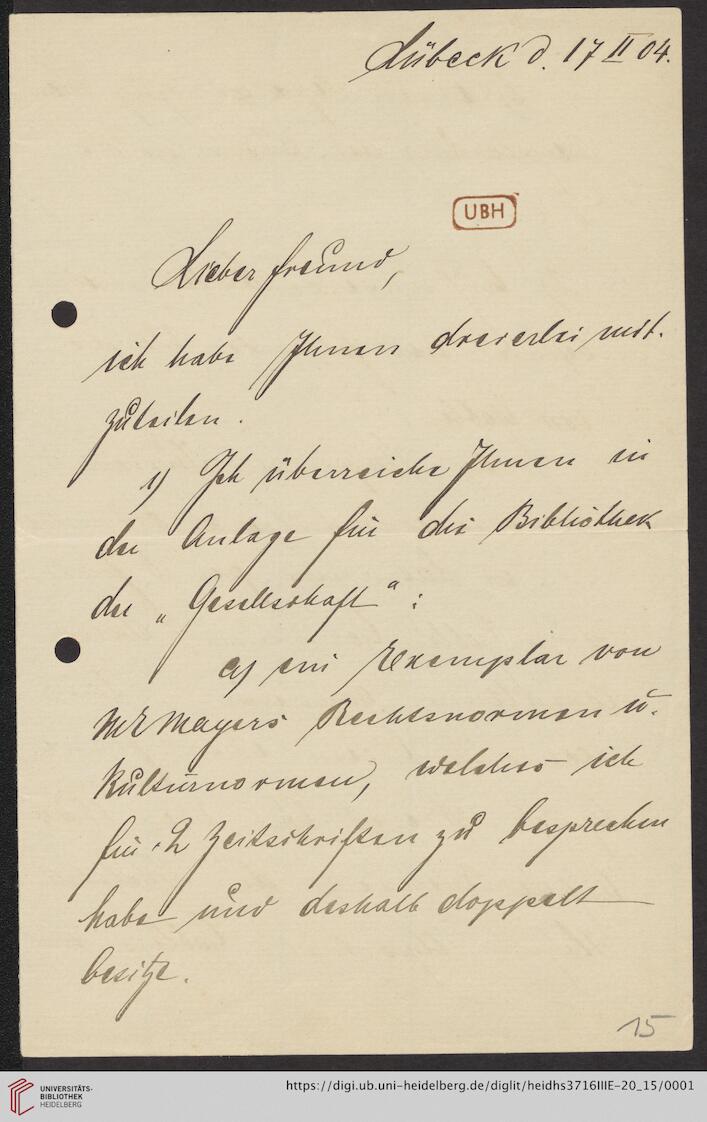 Lübeck d. 17 II 04.
UBH
Lieber Freund,
ich habe Ihnen dreierlei mit-
zuteilen.
1) Ich überreiche Ihnen in
der Anlage für die Bibliothek
der „Gesellschaft“:
a) ein Exemplar von
M E Mayers Rechtsnormen u.
Kulturnormen, welches ich
für 2 Zeitschriften zu besprechen
habe und deshalb doppelt
besitze.
15
UNIVERSITÄTS-
BIBLIOTHEK
HEIDELBERG
https://digi.ub.uni-heidelberg.de/diglit/heidhs3716IIIE-20_15/0001